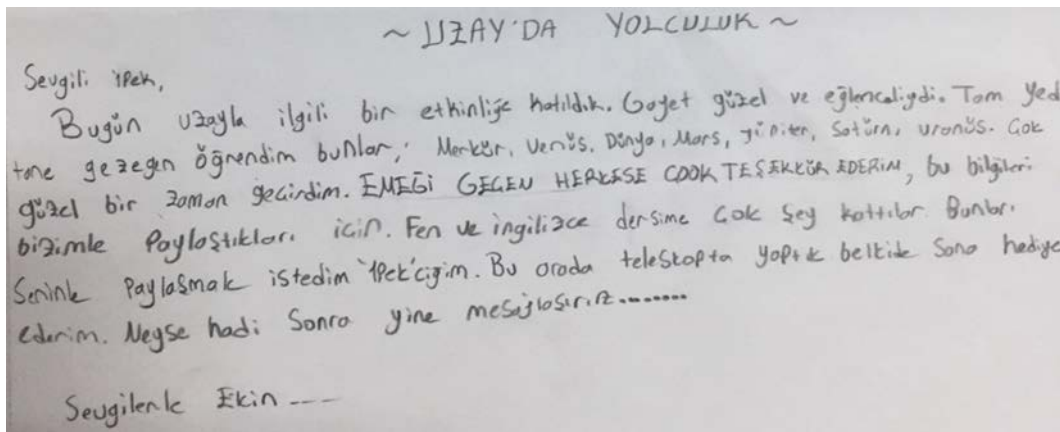 ~ UZAY'DA YOLCULUK ~
Sevgili İpek,
Bugün uzayla ilgili bir etkinliğe katıldık. Gayet güzel ve eğlenceliydi. Tam yed
tane gezegen öğrendim bunlar; Merkür, Venüs, Dünya, Mars, jüpiter, Satürn, uranüs. Çok
güzel bir zaman geçirdim. EMEĞİ GEÇEN HERKESE ÇOOK TEŞEKKÜR EDERİM, bu bilgileri
bizimle Paylaştıkları için. Fen ve ingilizce dersime Çok Şey kattılar. Bunları
Seninle Paylaşmak istedim İpek'ciğim. Bu arada teleskopta yaptık belkide Sana hediye
ederim. Neyse hadi Sonra yine mesajlaşırız........
Sevgilerle Ekin ----